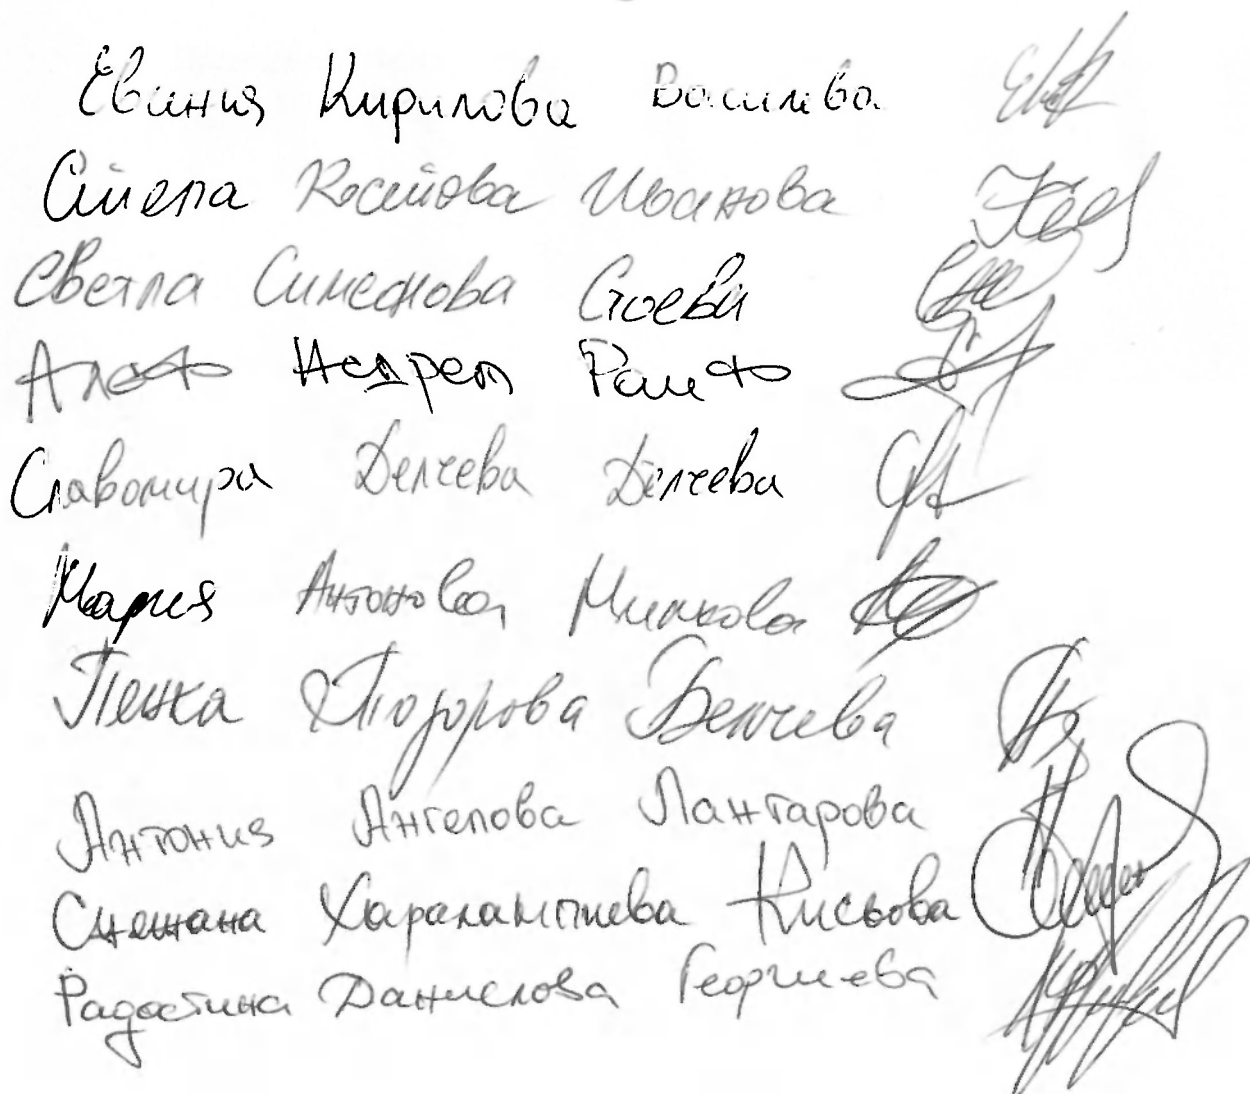 Евгения Кирилова Василева
Стела Костова Иванова
Светла Симеонова Стоева
Недрет Раиф
Славомира Делчева Делчева
Мария Антонова Милкова
Пенка Тодорова Бенчева
Антония Ангелова Лангарова
Снежана Харалампиева Кисьова
Радостина Данислова Георгиева